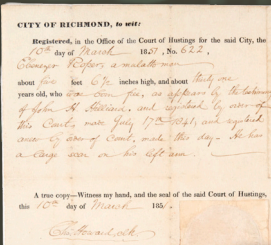 CITY OF RICHMOND, to wit:
Registered, in the Office of the Court of Hustings for the said City, the
10th day of March 1851, No. 622,
Ebenezer Roper, a mulatto man
about five feet 6½ inches high, and about thirty one
years old, who was born free, as appears by the
of John H. and registered by order of
this Court, made July 17th 1841; and registered
anew by order of Court, made this day. He has
a large scar on his left arm.
A true copy—Witness my hand, and the seal of the said Court of Hustings,
this 10th day of March 185
Ch: Howard, clk